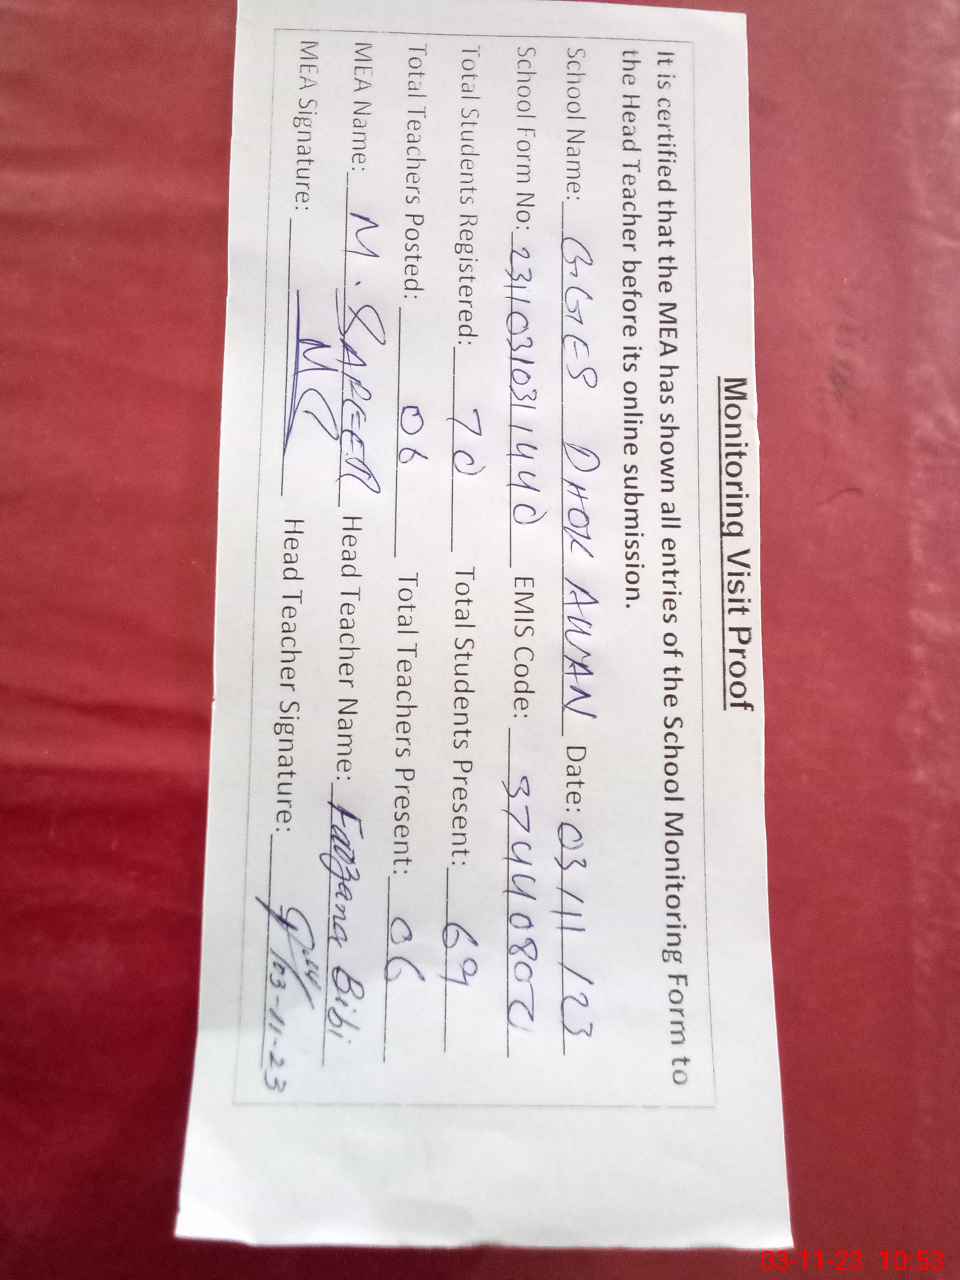 Monitoring Visit Proof
It is certified that the MEA has shown all entries of the School Monitoring Form to
the Head Teacher before its online submission.
School Name: GGES DHOK AWAN Date: 03/11/23
School Form No: 2311031031440 EMIS Code:
Total Students Registered: 70 Total Students Present: 69
Total Teachers Posted: 06 Total Teachers Present: 06
MEA Name: M. Head Teacher Name: Farzana Bibi
MEA Signature: Head Teacher Signature: 03-11-23
03-11-23 10:53